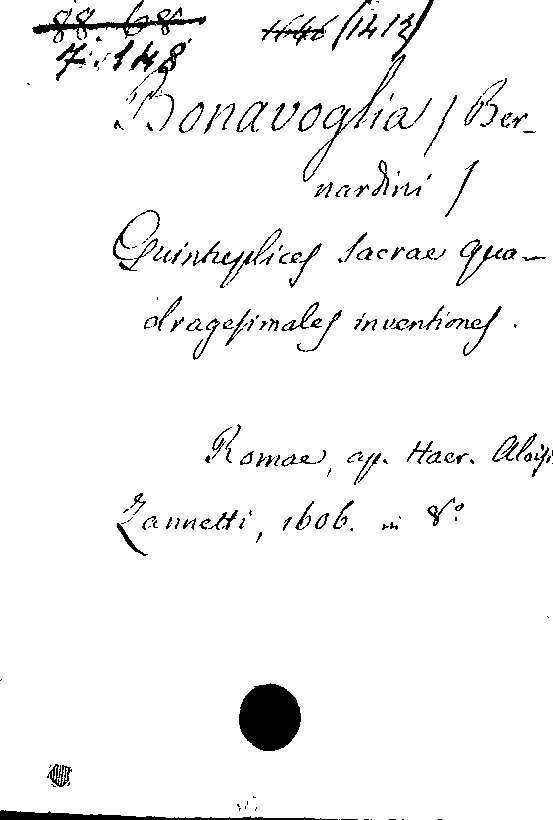 88. 68 1646 (1413)
7. 148
Bonavoglia / Ber-
nardini /
Quintuplices sacrae qua-
dragesimales inventiones.
Romae, ap. Haer. Aloys
Zannetti, 1606. in 8°